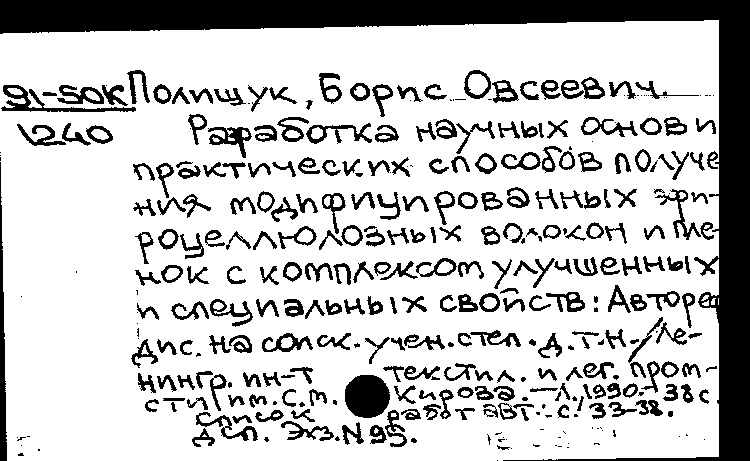 91-50K Полищук, Борис Овсеевич.
1240 Разработка научных основ и
практических способов получе
ния модифицированных эфи-
роцеллюлозных волокон и пле-
нок с комплексом улучшенных
и специальных свойств: Авторе
дис. на соиск. учен. степ. д.т.н./Ле-
нингр. ин-т текстил. и лег. пром-
сти им. С.М. Кирова. — Л., 1990. — 38 с.
список работ авт.: с. 33-38.
дсп. Экз. N 95.